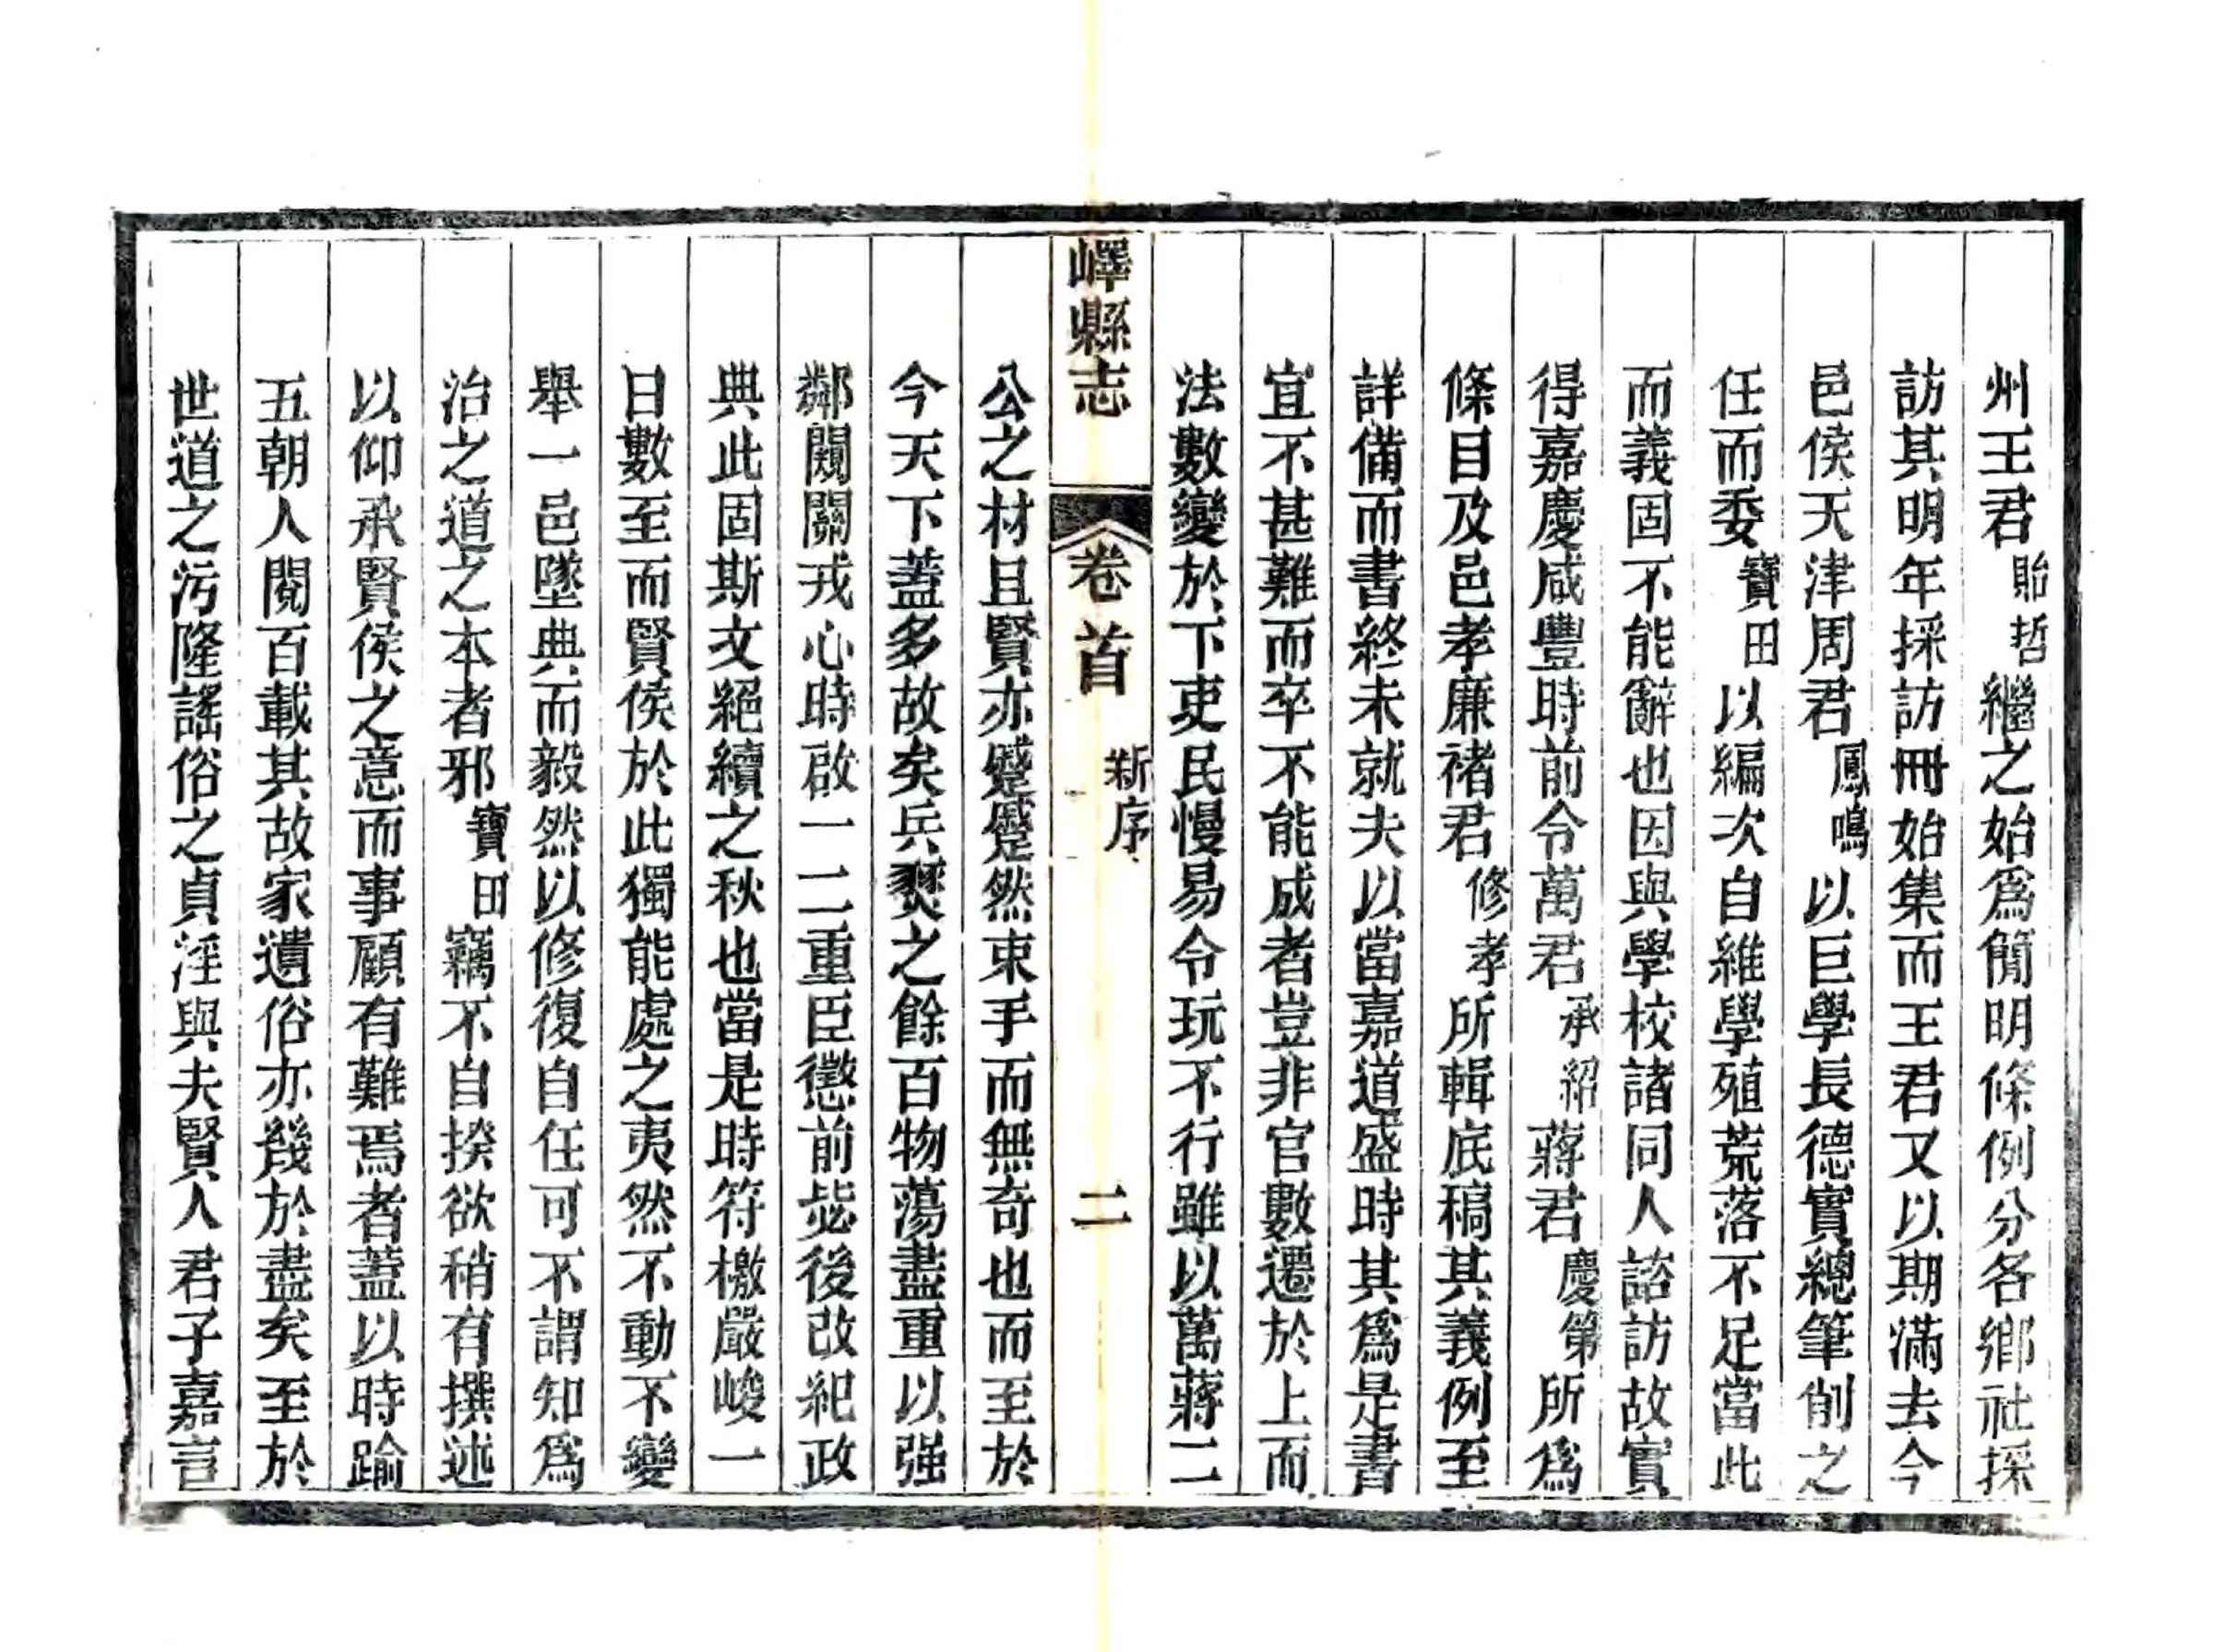 州王君貽哲繼之始爲簡明條例分各鄉社採
訪其明年採訪冊始集而王君又以期滿去今
邑侯天津周君鳳鳴以巨學長德實總筆削之
任而委寶田以編次自維學殖荒落不足當此
而義固不能辭也因與學校諸同人諮訪故實
得嘉慶咸豐時前令萬君承紹蔣君慶第所爲
條目及邑孝廉褚君修孝所輯底稿其義例至
詳備而書終未就夫以當嘉道盛時其爲是書
宜不甚難而卒不能成者豈非官數遷於上而
法數變於下吏民慢易令玩不行雖以萬蔣二
嶧縣志 卷首 新序 二
公之材且賢亦蹙蹙然束手而無奇也而至於
今天下蓋多故矣兵燹之餘百物蕩盡重以强
鄰鬩鬭戎心時啟一二重臣懲前毖後改紀政
典此固斯文絕續之秋也當是時符檄嚴峻一
日數至而賢侯於此獨能處之夷然不動不變
舉一邑墜典而毅然以修復自任可不謂知爲
治之道之本者邪寶田竊不自揆欲稍有撰述
以仰承賢侯之意而事顧有難焉者蓋以時踰
五朝人閱百載其故家遺俗亦幾於盡矣至於
世道之污隆謠俗之貞淫與夫賢人君子嘉言